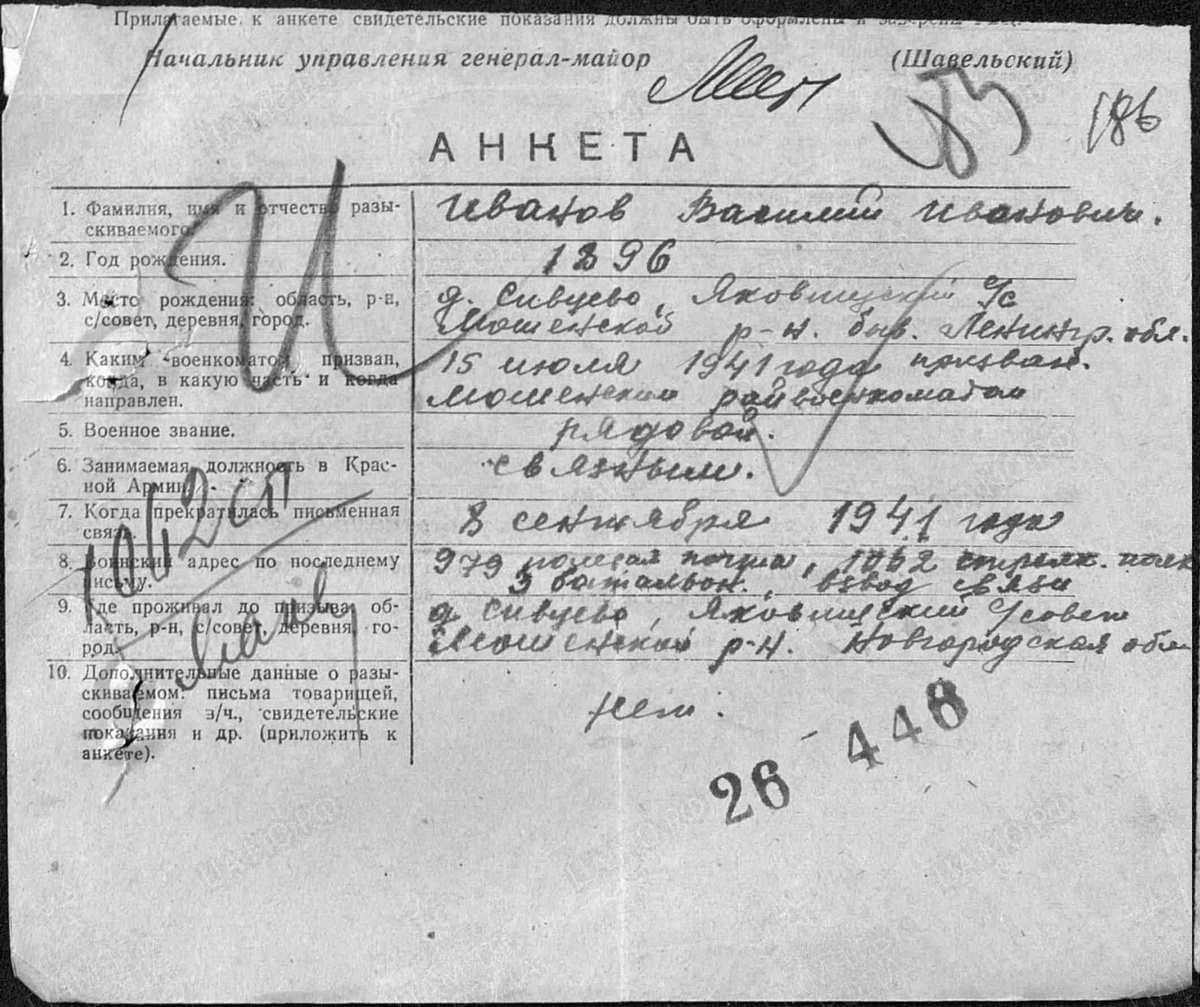 Прилагаемые к анкете свидетельские показания должны быть оформлены и заверены
Начальник управления генерал-майор (Шавельский)
186
АНКЕТА
1. Фамилия, имя и отчество разы-
скиваемого.
Иванов Василий Иванович.
2. Год рождения.
1896
3. Место рождения: область, р-н,
с/совет, деревня, город.
д. Сивцево, Яковищский С/с
Мошенской р-н. быв. Ленингр. обл.
4. Каким военкоматом призван,
когда, в какую часть и когда
направлен.
15 июля 1941 года призван.
Мошенским райвоенкоматом
5. Военное звание.
рядовой.
6. Занимаемая должность в Крас-
ной Армии.
связным.
7. Когда прекратилась письменная
связь.
8 сентября 1941 года
8. Воинский адрес по последнему
письму.
979 полевая почта, 1062 стрелк. полк
3 батальон. взвод связи
9. Где проживал до призыва, об-
ласть, р-н, с/совет, деревня, го-
род.
д. Сивцево, Яковищский С/совет
Мошенской р-н. Новгородская обл
10. Дополнительные данные о разы-
скиваемом: письма товарищей,
сообщения з/ч., свидетельские
показания и др. (приложить к
анкете).
нет.
И
1062 сп
26 448